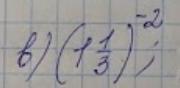 в) (1 1/3)^-2;